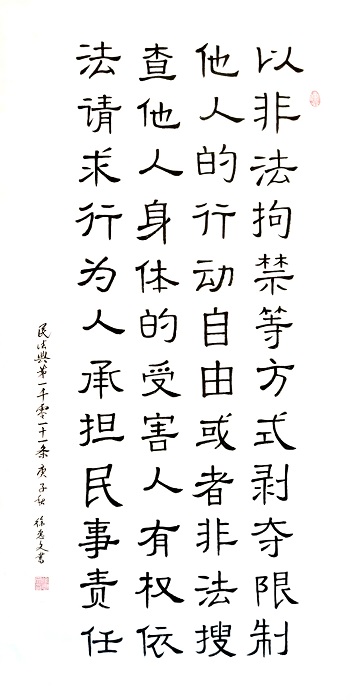 以非法拘禁等方式剥夺限制
他人的行动自由或者非法搜
查他人身体的受害人有权依
法请求行为人承担民事责任
民法典第一千零一十一条 庚子秋 徐文书